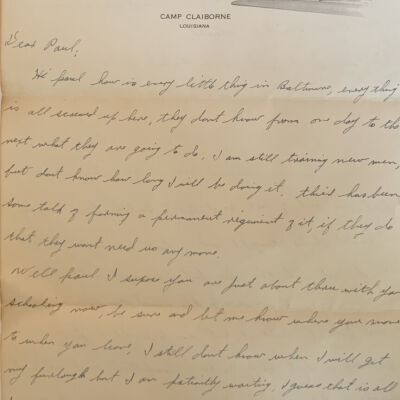 CAMP CLAIBORNE
LOUISIANA
Dear Paul;
Hi paul how is every little thing in Baltimore, everything
is all scewed up here, they dont know from one day to the
next what they are going to do. I am still training new men,
but dont know how long I will be doing it. their has been
some talk of forming a permanent regiment of it, if they do
that, they wont need us any more.
Well paul I supose you are just about three with your
schooling now, be sure and let me know where you move
to when you leave, I still dont know when I will get
my furlough but I am patiently waiting, I guess that is all